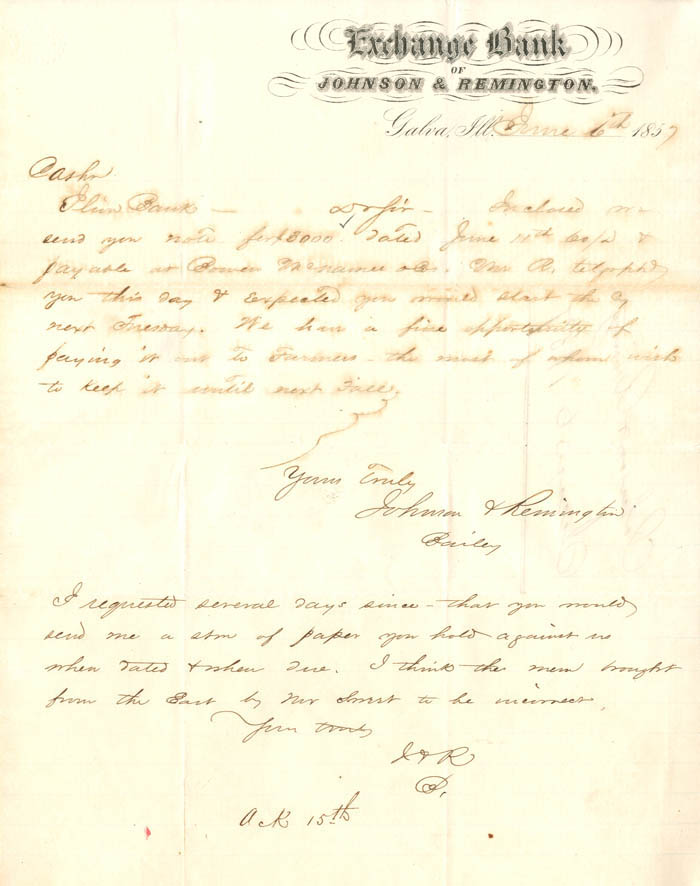 Exchange Bank
OF
JOHNSON & REMINGTON.
Galva, Ill. June 6th 1857
Cashr
Bank — Dr Sir — Inclosed we
send you note for $3000 dated June 11th 60/d &
payable at Bowen McNamee & Co. Mr R. telgraphd
you this day & expected you would start the Cy
next Tuesday. We have a fine opportunity of
paying it out to Farmers — the most of whom wish
to keep it until next Fall.
Yours Truly
Johnson & Remington
Bailey
I requested several days since — that you would
send me a stm of paper you hold against us
when dated & when due. I think the mem brought
from the East by Mr to be incorrect.
Yours truly
J & R
Ack 15th